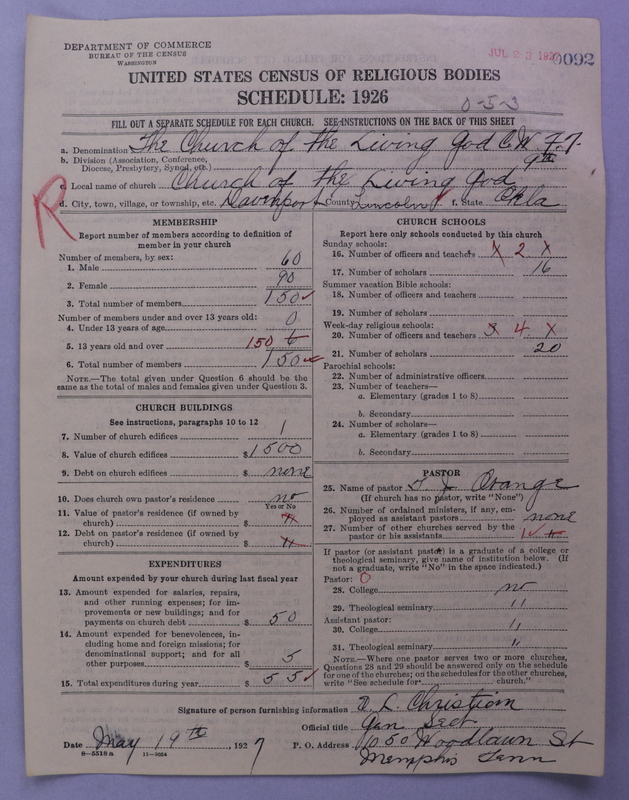 DEPARTMENT OF COMMERCE
BUREAU OF THE CENSUS
WASHINGTON
JUL 23 192
0092
UNITED STATES CENSUS OF RELIGIOUS BODIES
SCHEDULE: 1926
0-5-3
FILL OUT A SEPARATE SCHEDULE FOR EACH CHURCH. SEE INSTRUCTIONS ON THE BACK OF THIS SHEET
a. Denomination The Church of the Living God C.W. F.F.
b. Division (Association, Conference,
Diocese, Presbytery, Synod, etc.) 9th
c. Local name of church Church of the Living God
d. City, town, village, or township, etc. Davenport County Lincoln f. State Okla
R
MEMBERSHIP
Report number of members according to definition of
member in your church
Number of members, by sex:
1. Male 60
2. Female 90
3. Total number of members 150
Number of members under and over 13 years old:
4. Under 13 years of age 0
5. 13 years old and over 150
6. Total number of members 150
NOTE.—The total given under Question 6 should be the
same as the total of males and females given under Question 3.
CHURCH BUILDINGS
See instructions, paragraphs 10 to 12
7. Number of church edifices 1
8. Value of church edifices $ 1500
9. Debt on church edifices $ none
10. Does church own pastor's residence no
Yes or No
11. Value of pastor's residence (if owned by
church) $ "
12. Debt on pastor's residence (if owned by
church) $ "
EXPENDITURES
Amount expended by your church during last fiscal year
13. Amount expended for salaries, repairs,
and other running expenses; for im-
provements or new buildings; and for
payments on church debt $ 50
14. Amount expended for benevolences, in-
cluding home and foreign missions; for
denominational support; and for all
other purposes $ 5
15. Total expenditures during year $ 55
CHURCH SCHOOLS
Report here only schools conducted by this church
Sunday schools:
16. Number of officers and teachers 2 X
17. Number of scholars 16
Summer vacation Bible schools:
18. Number of officers and teachers
19. Number of scholars
Week-day religious schools:
20. Number of officers and teachers 3 4 X
21. Number of scholars 20
Parochial schools:
22. Number of administrative officers
23. Number of teachers—
a. Elementary (grades 1 to 8)
b. Secondary
24. Number of scholars—
a. Elementary (grades 1 to 8)
b. Secondary
PASTOR
25. Name of pastor Orange
(If church has no pastor, write "None")
26. Number of ordained ministers, if any, em-
ployed as assistant pastors none
27. Number of other churches served by the
pastor or his assistants 1
If pastor (or assistant pastor) is a graduate of a college or
theological seminary, give name of institution below. (If
not a graduate, write "No" in the space indicated.)
Pastor: 0
28. College no
29. Theological seminary "
Assistant pastor:
30. College "
31. Theological seminary "
NOTE.—Where one pastor serves two or more churches,
Questions 28 and 29 should be answered only on the schedule
for one of the churches; on the schedules for the other churches,
write "See schedule for church."
Signature of person furnishing information Christian
Official title Gen Sect
Date May 19th, 1927 P. O. Address 1050 Woodlawn St
Memphis Tenn
8-5518a 11-9054